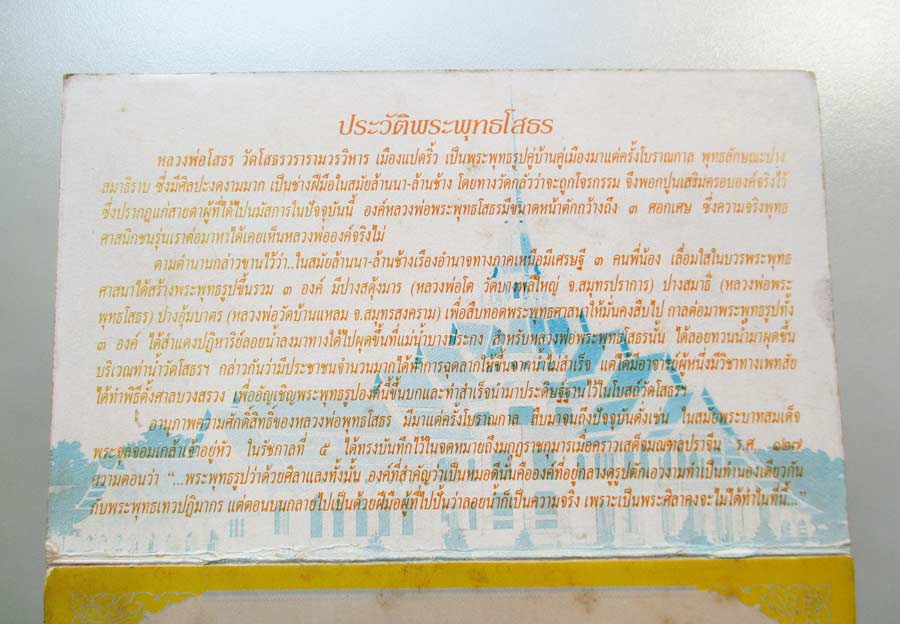 ประวัติพระพุทธโสธร
หลวงพ่อโสธร วัดโสธรวรารามวรวิหาร เมืองแปดริ้ว เป็นพระพุทธรูปคู่บ้านคู่เมืองมาแต่ครั้งโบราณกาล พุทธลักษณะปาง
สมาธิราบ ซึ่งมีศิลปะงดงามมาก เป็นช่างฝีมือในสมัยล้านนา-ล้านช้าง โดยทางวัดกลัวว่าจะถูกโจรกรรม จึงพอกปูนเสริมครอบองค์จริงไว้
ซึ่งปรากฎแก่สายตาผู้ที่ได้ไปนมัสการในปัจจุบันนี้ องค์หลวงพ่อพระพุทธโสธรมีขนาดหน้าตักกว้างถึง ๓ ศอกเศษ ซึ่งความจริงพุทธ
ศาสนิกชนรุ่นเราต่อมาหาได้เคยเห็นหลวงพ่อองค์จริงไม่
ตามตำนานกล่าวขานไว้ว่า..ในสมัยล้านนา-ล้านช้างเรืองอำนาจทางภาคเหนือมีเศรษฐี ๓ คนพี่น้อง เลื่อมใสในบวรพระพุทธ
ศาสนาได้สร้างพระพุทธรูปขึ้นรวม ๓ องค์ มีปางสดุ้งมาร (หลวงพ่อโต วัดบางพลีใหญ่ จ.สมุทรปราการ) ปางสมาธิ (หลวงพ่อพระ
พุทธโสธร) ปางอุ้มบาตร (หลวงพ่อวัดบ้านแหลม จ.สมุทรสงคราม) เพื่อสืบทอดพระพุทธศาสนาให้มั่นคงสืบไป กาลต่อมาพระพุทธรูปทั้ง
๓ องค์ ได้สำแดงปฏิหาริย์ลอยน้ำลงมาทางใต้ไปผุดขึ้นที่แม่น้ำบางปะกง สำหรับหลวงพ่อพระพุทธโสธรนั้น ได้ลอยทวนน้ำมาผุดขึ้น
บริเวณท่าน้ำวัดโสธรฯ กล่าวกันว่ามีประชาชนจำนวนมากได้ทำการฉุดลากให้ขึ้นจากน้ำไม่สำเร็จ แต่ได้มีอาจารย์ผู้หนึ่งมีวิชาทางเพทสัย
ได้ทำพิธีตั้งศาลบวงสรวง เพื่ออัญเชิญพระพุทธรูปองค์นี้ขึ้นบกและทำสำเร็จนำมาประดิษฐานไว้ในโบสถ์วัดโสธรฯ
อานุภาพความศักดิ์สิทธิ์ของหลวงพ่อพุทธโสธร มีมาแต่ครั้งโบราณกาล สืบมาจนถึงปัจจุบันดั่งเช่น ในสมัยพระบาทสมเด็จ
พระจุลจอมเกล้าเจ้าอยู่หัว ในรัชกาลที่ ๕ ได้ทรงบันทึกไว้ในจดหมายถึงมกุฎราชกุมารเมื่อคราวเสด็จมณฑลปราจีน ร.ศ. ๑๒๗
ความตอนว่า "...พระพุทธรูปว่าด้วยศิลาแลงทั้งนั้น องค์ที่สำคัญว่าเป็นหมอดีนั้นคือองค์ที่อยู่กลางดูรูปตักเอวงามทำเป็นทำนองเดียวกัน
กับพระพุทธเทวปฏิมากร แต่ตอนบนกลายไปเป็นด้วยฝีมือผู้ที่ไปปั้นว่าลอยน้ำก็เป็นความจริง เพราะเป็นพระศิลาคงจะไม่ได้ทำในที่นี้..."